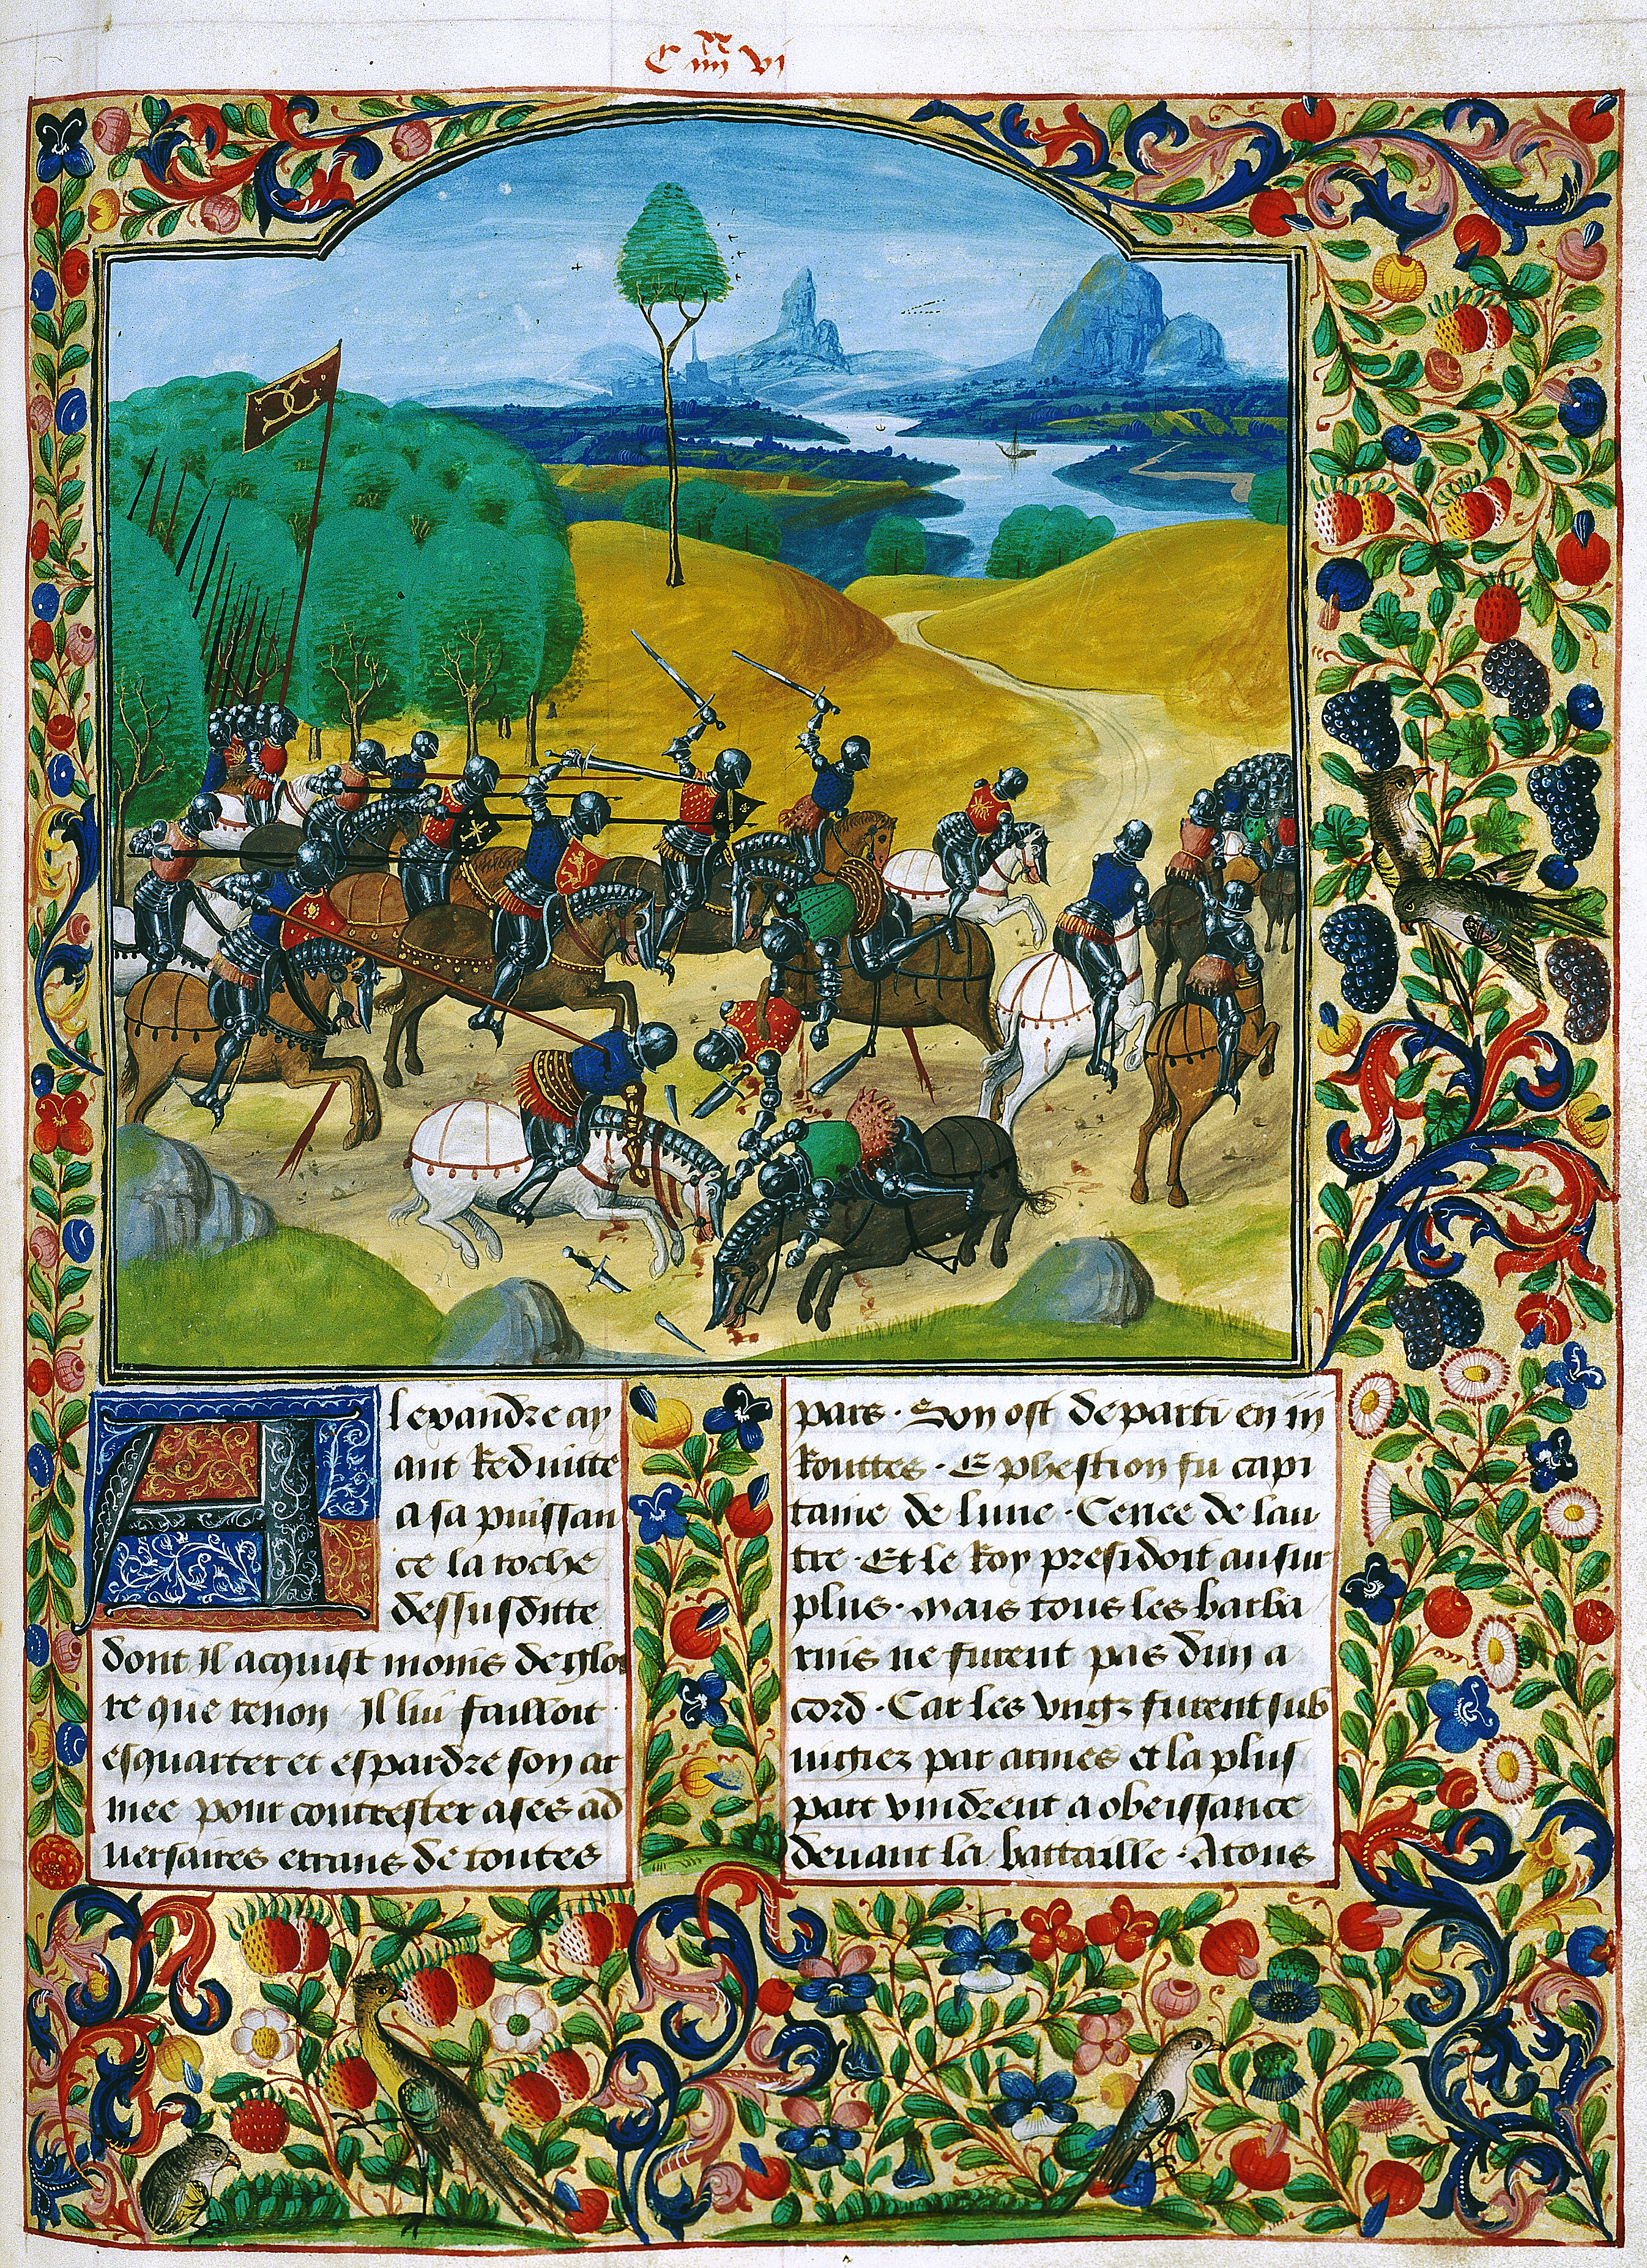 C iiii xx vi
Alexandre ay
ant Reduitte
a sa puissan
ce la roche
dessusditte
dont Il acquist moins de gloi
re que renon Il lui failloit
esquarter et espardre son ar
mee pour contrester a ses ad
uersaires errans de toutes
pars . Son ost departi en iii
Routtes . Ephestion fu capi
taine de lune . Cenee de lau
tre . Et le Roy presidoit au sur
plus . Mais tous les barba
rins ne furent pas dun a
cord . Car les vngz furent sub
iugiez par armes et la plus
part vindrent a obeissance
deuant la battaille . A tous